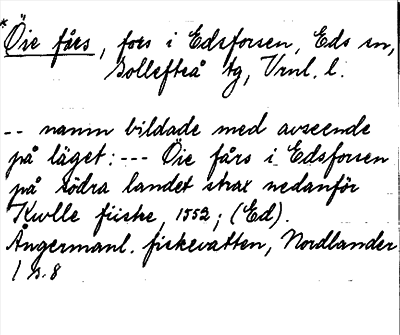 *Öie fårs, fors i Edsforsen, Eds sn,
Sollefteå tg, Vrnl. l.
-- namn bildade med avseende
på läget: --- Öie fårs i Edsforsen
på södra landet strax nedanför
Kwlle fiiske, 1552; (Ed).
Ångermanl. fiskevatten, Nordlander
1 s. 8